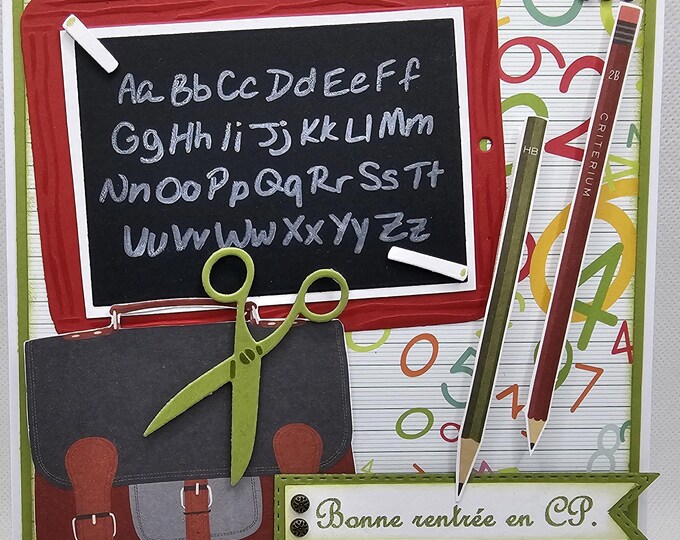 Aa Bb Cc Dd Ee Ff
Gg Hh Ii Jj Kk Ll Mm
Nn Oo Pp Qq Rr Ss Tt
Uu Vv Ww Xx Yy Zz
HB
2B
CRITERIUM
Bonne rentrée en CP.